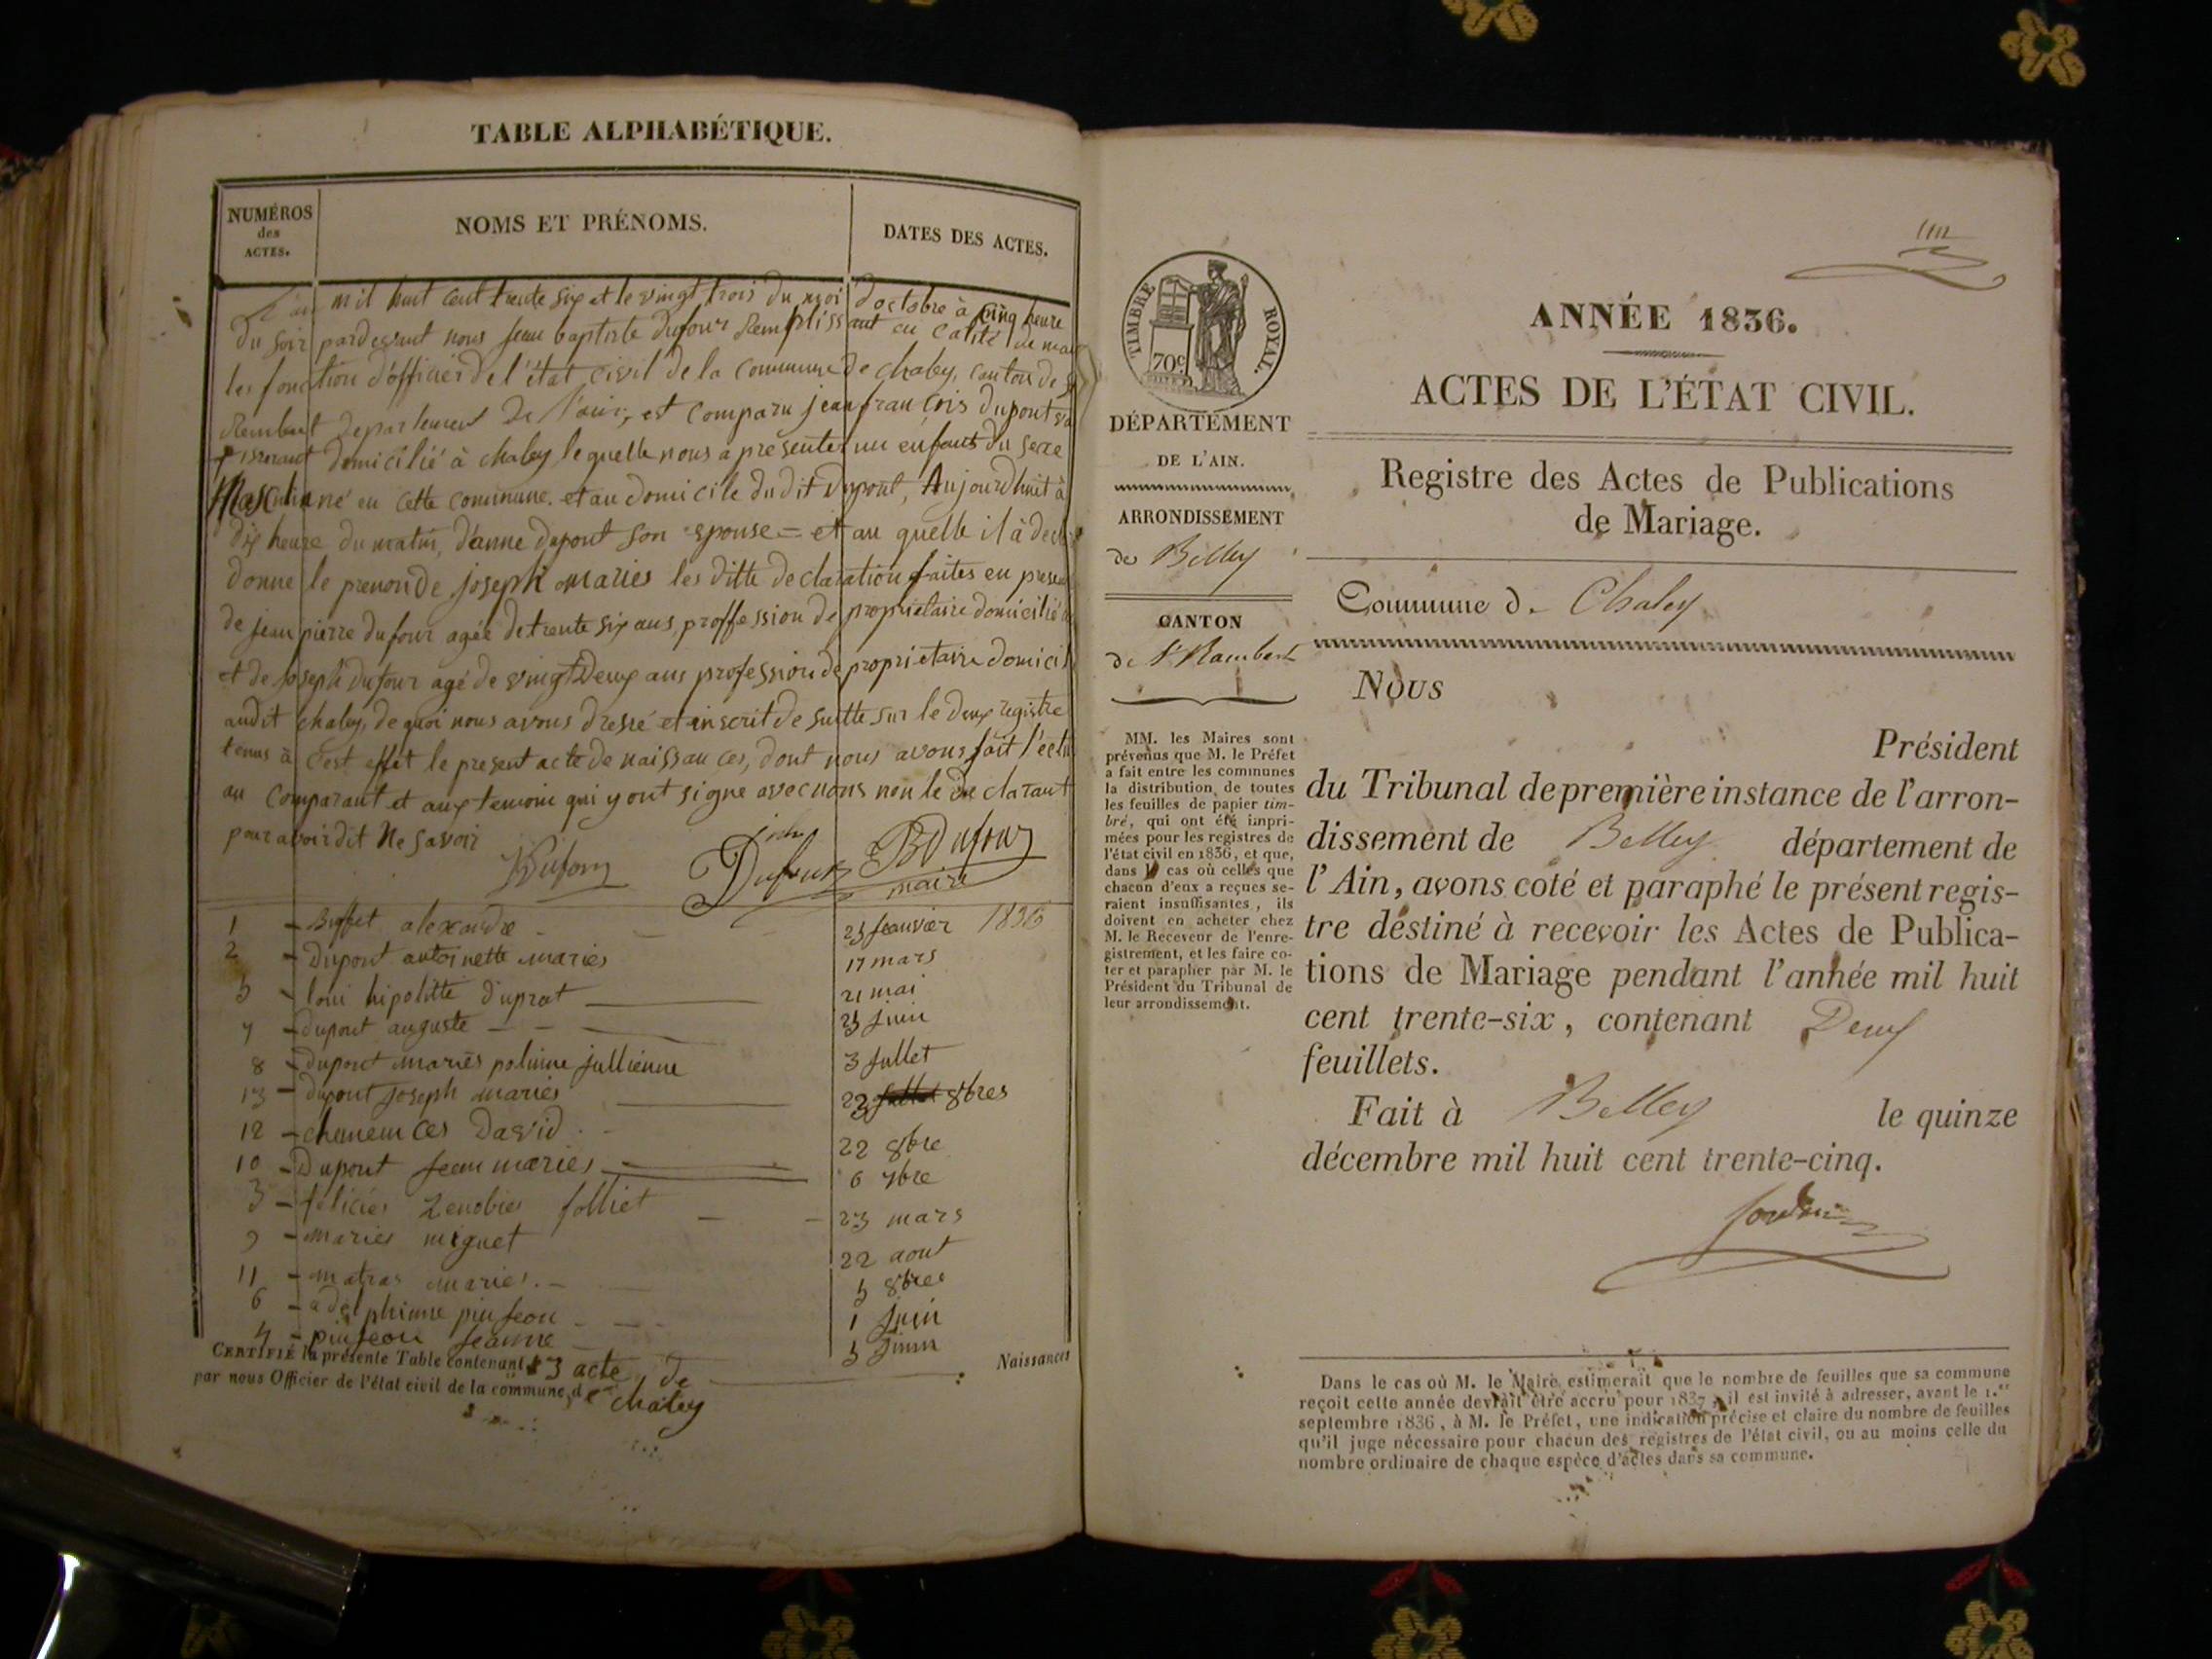 TABLE ALPHABÉTIQUE.
NUMÉROS
des
ACTES.
NOMS ET PRÉNOMS.
DATES DES ACTES.
L'an mil huit cent trente six et le vingt trois du moi d'octobre à cinq heure
du soir pardevant nous jean baptiste dufour Remplissant en calité de mair
les fonction d'officier de l'état civil de la commune de chaley, canton de
Rembert departement de l'ain, est comparu jean francois dupont
domicilié à chaley lequelle nous a presenter un enfant du sexe
Masculin né en cette commune. et au domicile du dit dupont, Aujourd'huit à
dix heure du matin, d'anne dupont son epouse = et au quelle il à
donne le prenon de joseph maries les ditte declaration faites en
de jean pierre dufour agée de trente six ans, proffession de propriétaire domicilié
et de joseph dufour agé de vingt Deux ans profession de propriétaire domicil
audit chaley, de quoi nous avons dressé et inscrit de suitte sur le deux registre
tenus à c'est effet le present acte de naissances, dont nous avons fait l'ectu
au comparant et aux temoin qui y ont signe avec nous non le de clarant
pour avoir dit ne savoir
Dufour
Dufour
BDufour
maire
1 - Buffet alexandre - 23 Jeanvier 1836
2 - Dupont antoinette maries 17 mars
5 - loui hipolitte duprat 21 mai
7 - dupont auguste 23 Juin
8 - dupont maries poline jullienne 3 Jullet
13 - dupont Joseph maries 23 8bres
12 - chemences David 22 8bre
10 - Dupont Jean maries 6 7bre
3 - félicies Zenobies folliet 23 mars
9 - maries miguet 22 aout
11 - matras maries. 5 8bre
6 - adelphinne pinjeon 1 Juin
4 - pinjeon Jeanne 5
CERTIFIÉ la présente Table contenant 13 acte de Naissances
par nous Officier de l'état civil de la commune de chaley
TIMBRE ROYAL.
70c
DÉPARTEMENT
DE L'AIN.
ARRONDISSEMENT
de Belley
CANTON
de St Rambert
MM. les Maires sont
prévenus que M. le Préfet
a fait entre les communes
la distribution de toutes
les feuilles de papier tim-
bré, qui ont été impri-
mées pour les registres de
l'état civil en 1836, et que,
dans le cas où celles que
chacun d'eux a reçues se-
raient insuffisantes, ils
doivent en acheter chez
M. le Receveur de l'enre-
gistrement, et les faire co-
ter et parapher par M. le
Président du Tribunal de
leur arrondissement.
ANNÉE 1836.
ACTES DE L'ÉTAT CIVIL.
Registre des Actes de Publications
de Mariage.
Commune de Chaley
Nous
Président
du Tribunal de première instance de l'arron-
dissement de Belley département de
l'Ain, avons coté et paraphé le présent regis-
tre destiné à recevoir les Actes de Publica-
tions de Mariage pendant l'année mil huit
cent trente-six, contenant Deux
feuillets.
Fait à Belley le quinze
décembre mil huit cent trente-cinq.
Dans le cas où M. le Maire estimerait que le nombre de feuilles que sa commune
reçoit cette année devrait être accru pour 1837, il est invité à adresser, avant le 1.er
septembre 1836, à M. le Préfet, une indication précise et claire du nombre de feuilles
qu'il juge nécessaire pour chacun des registres de l'état civil, ou au moins celle du
nombre ordinaire de chaque espèce d'actes dans sa commune.